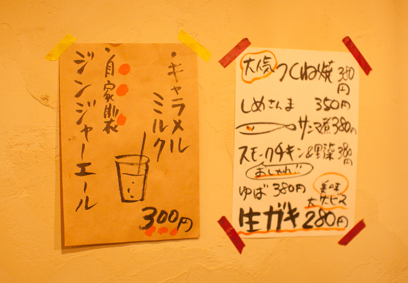 ・キャラメルミルク
・自家製
ジンジャーエール
300円
大人気 つくね焼 380円
しめさんま 350円
380円
スモークチキン
おしゃれ!!
ゆば 380円
美味
大サービス
生ガキ 280円